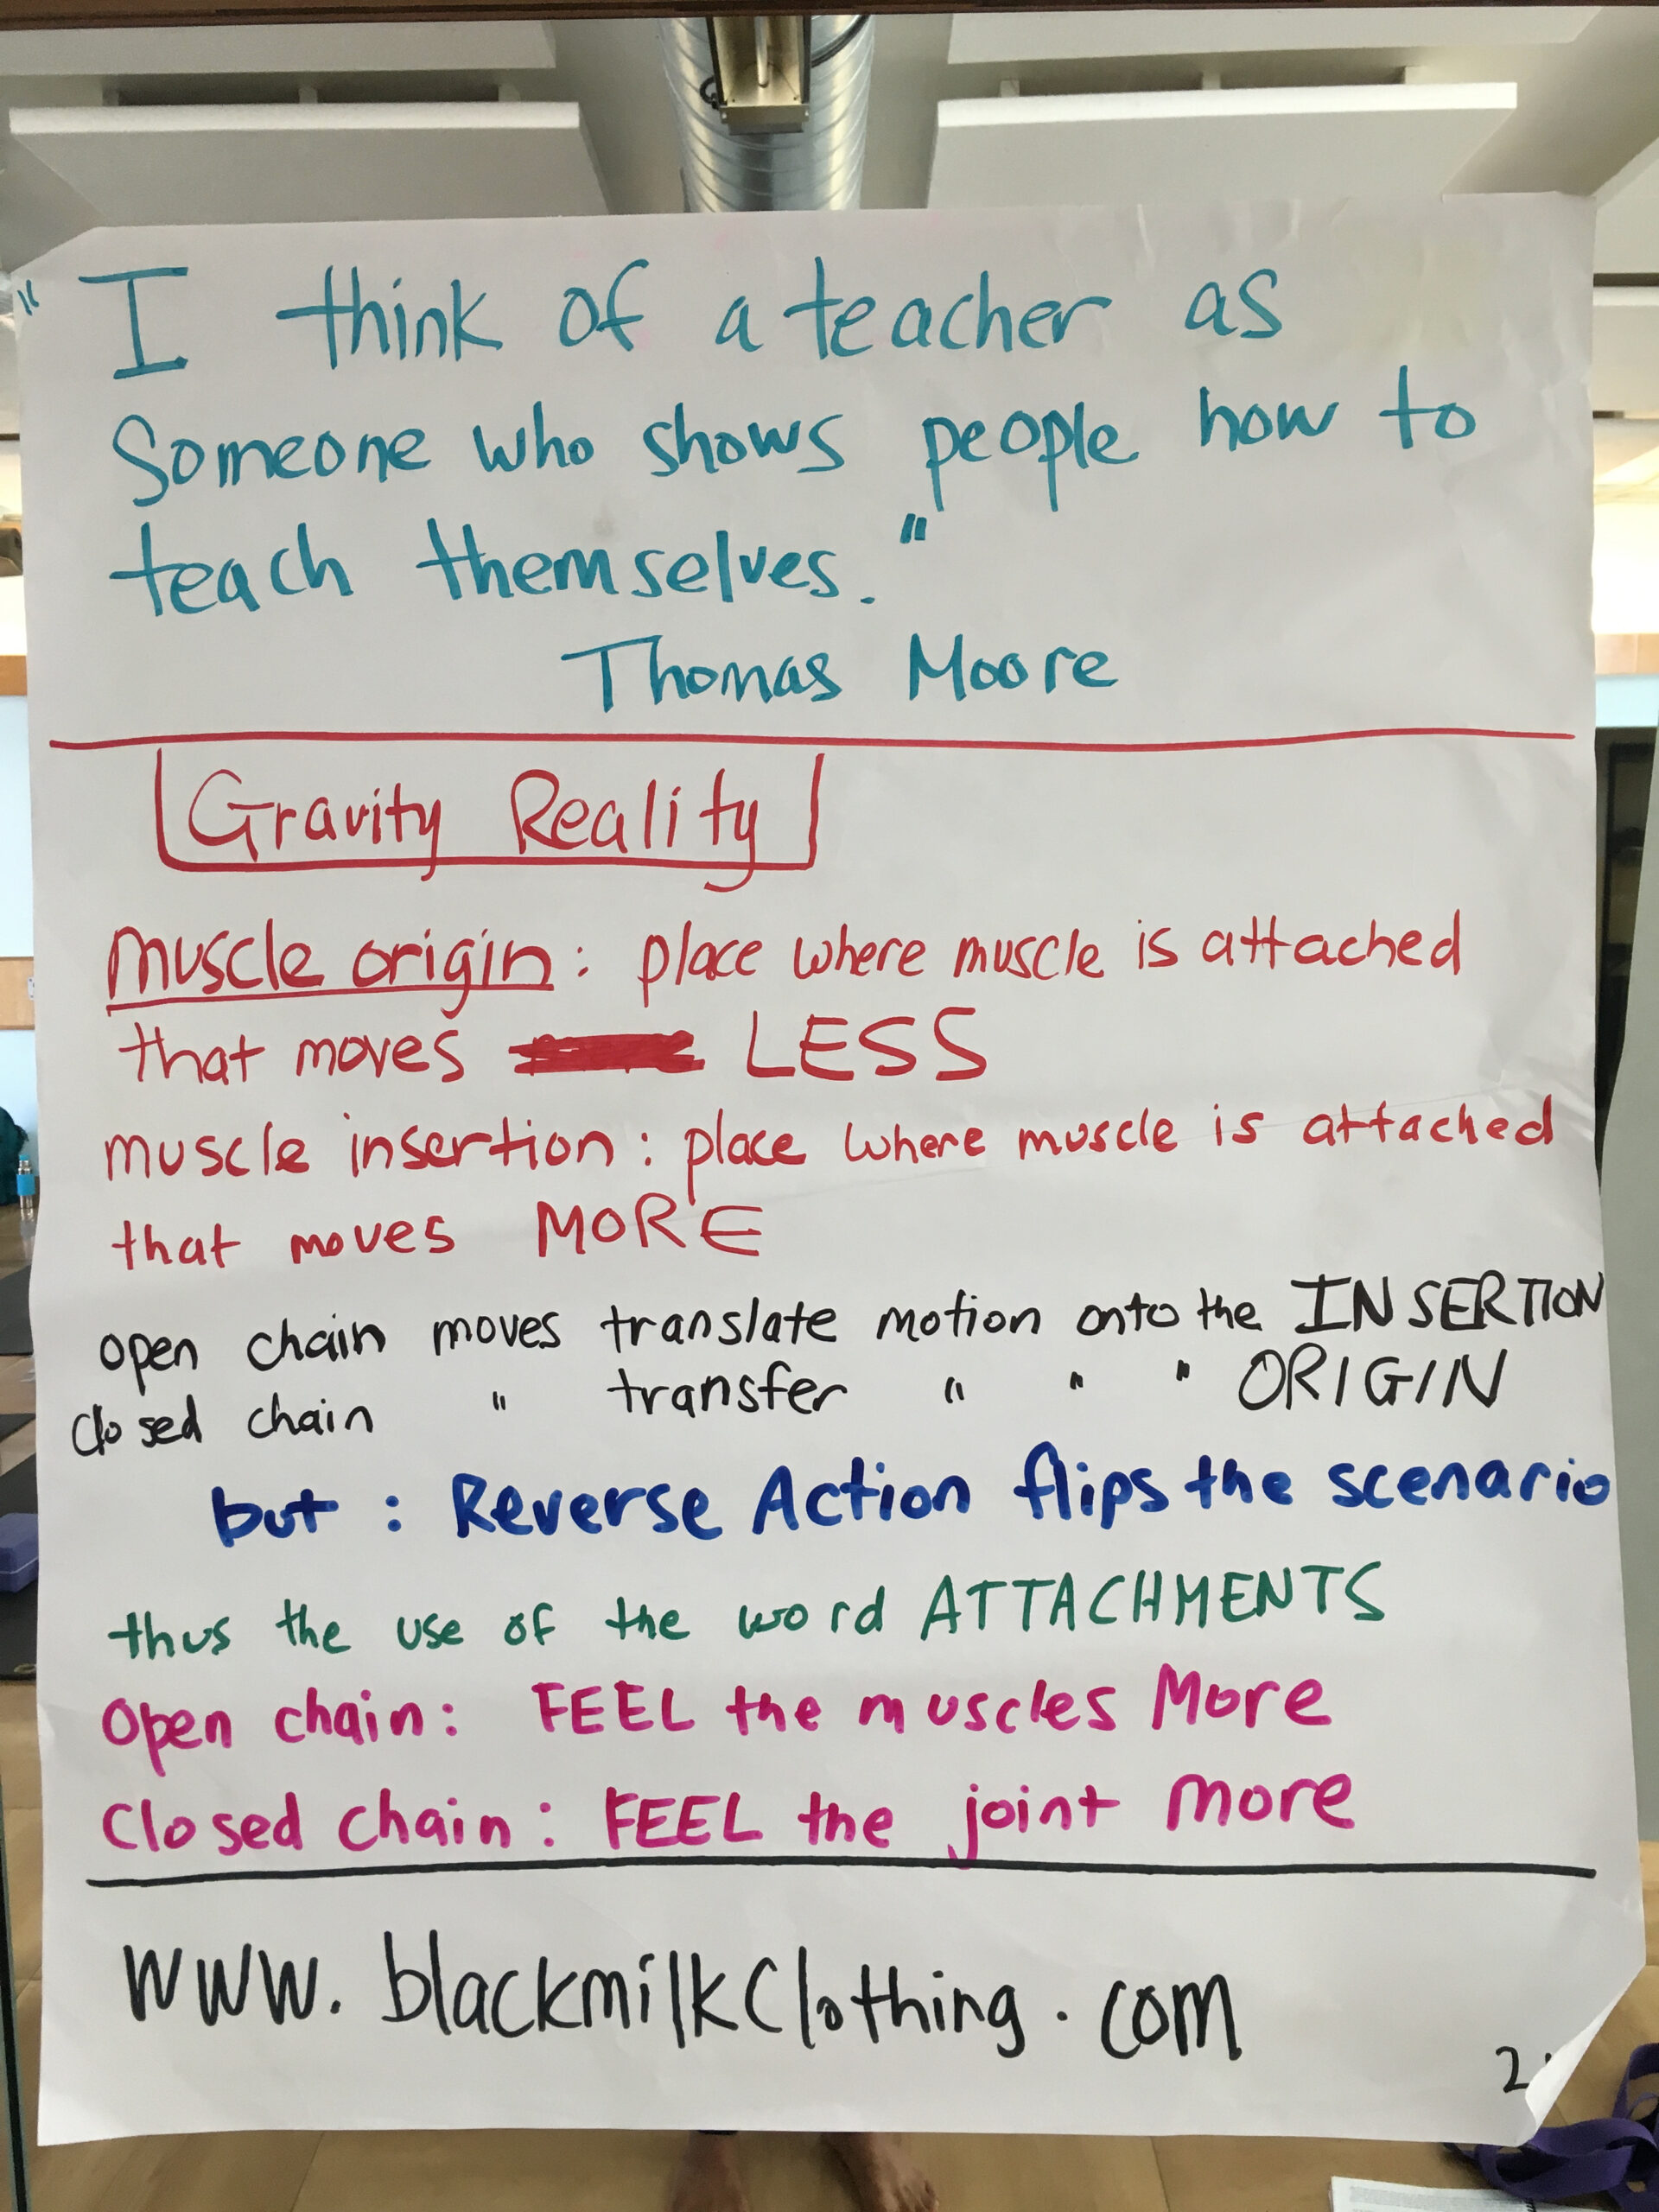 "I think of a teacher as
Someone who shows people how to
teach themselves."
Thomas Moore
Gravity Reality
muscle origin: place where muscle is attached
that moves LESS
muscle insertion: place where muscle is attached
that moves MORE
open chain moves translate motion onto the INSERTION
Closed chain " transfer " " " ORIGIN
but: Reverse Action flips the scenario
thus the use of the word ATTACHMENTS
Open chain: FEEL the muscles More
Closed chain: FEEL the joint more
www.blackmilkClothing.com